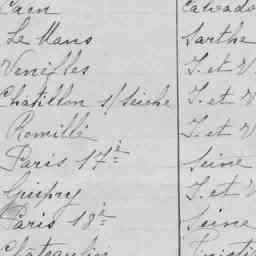 Caen Calvado
Le Mans Sarthe
Venifles I. et V
Châtillon s/ Seiche I. et V
Romillé I. et V
Paris 17è Seine
Guipry I. et V
Paris 18è Seine
Châteaulin Finist